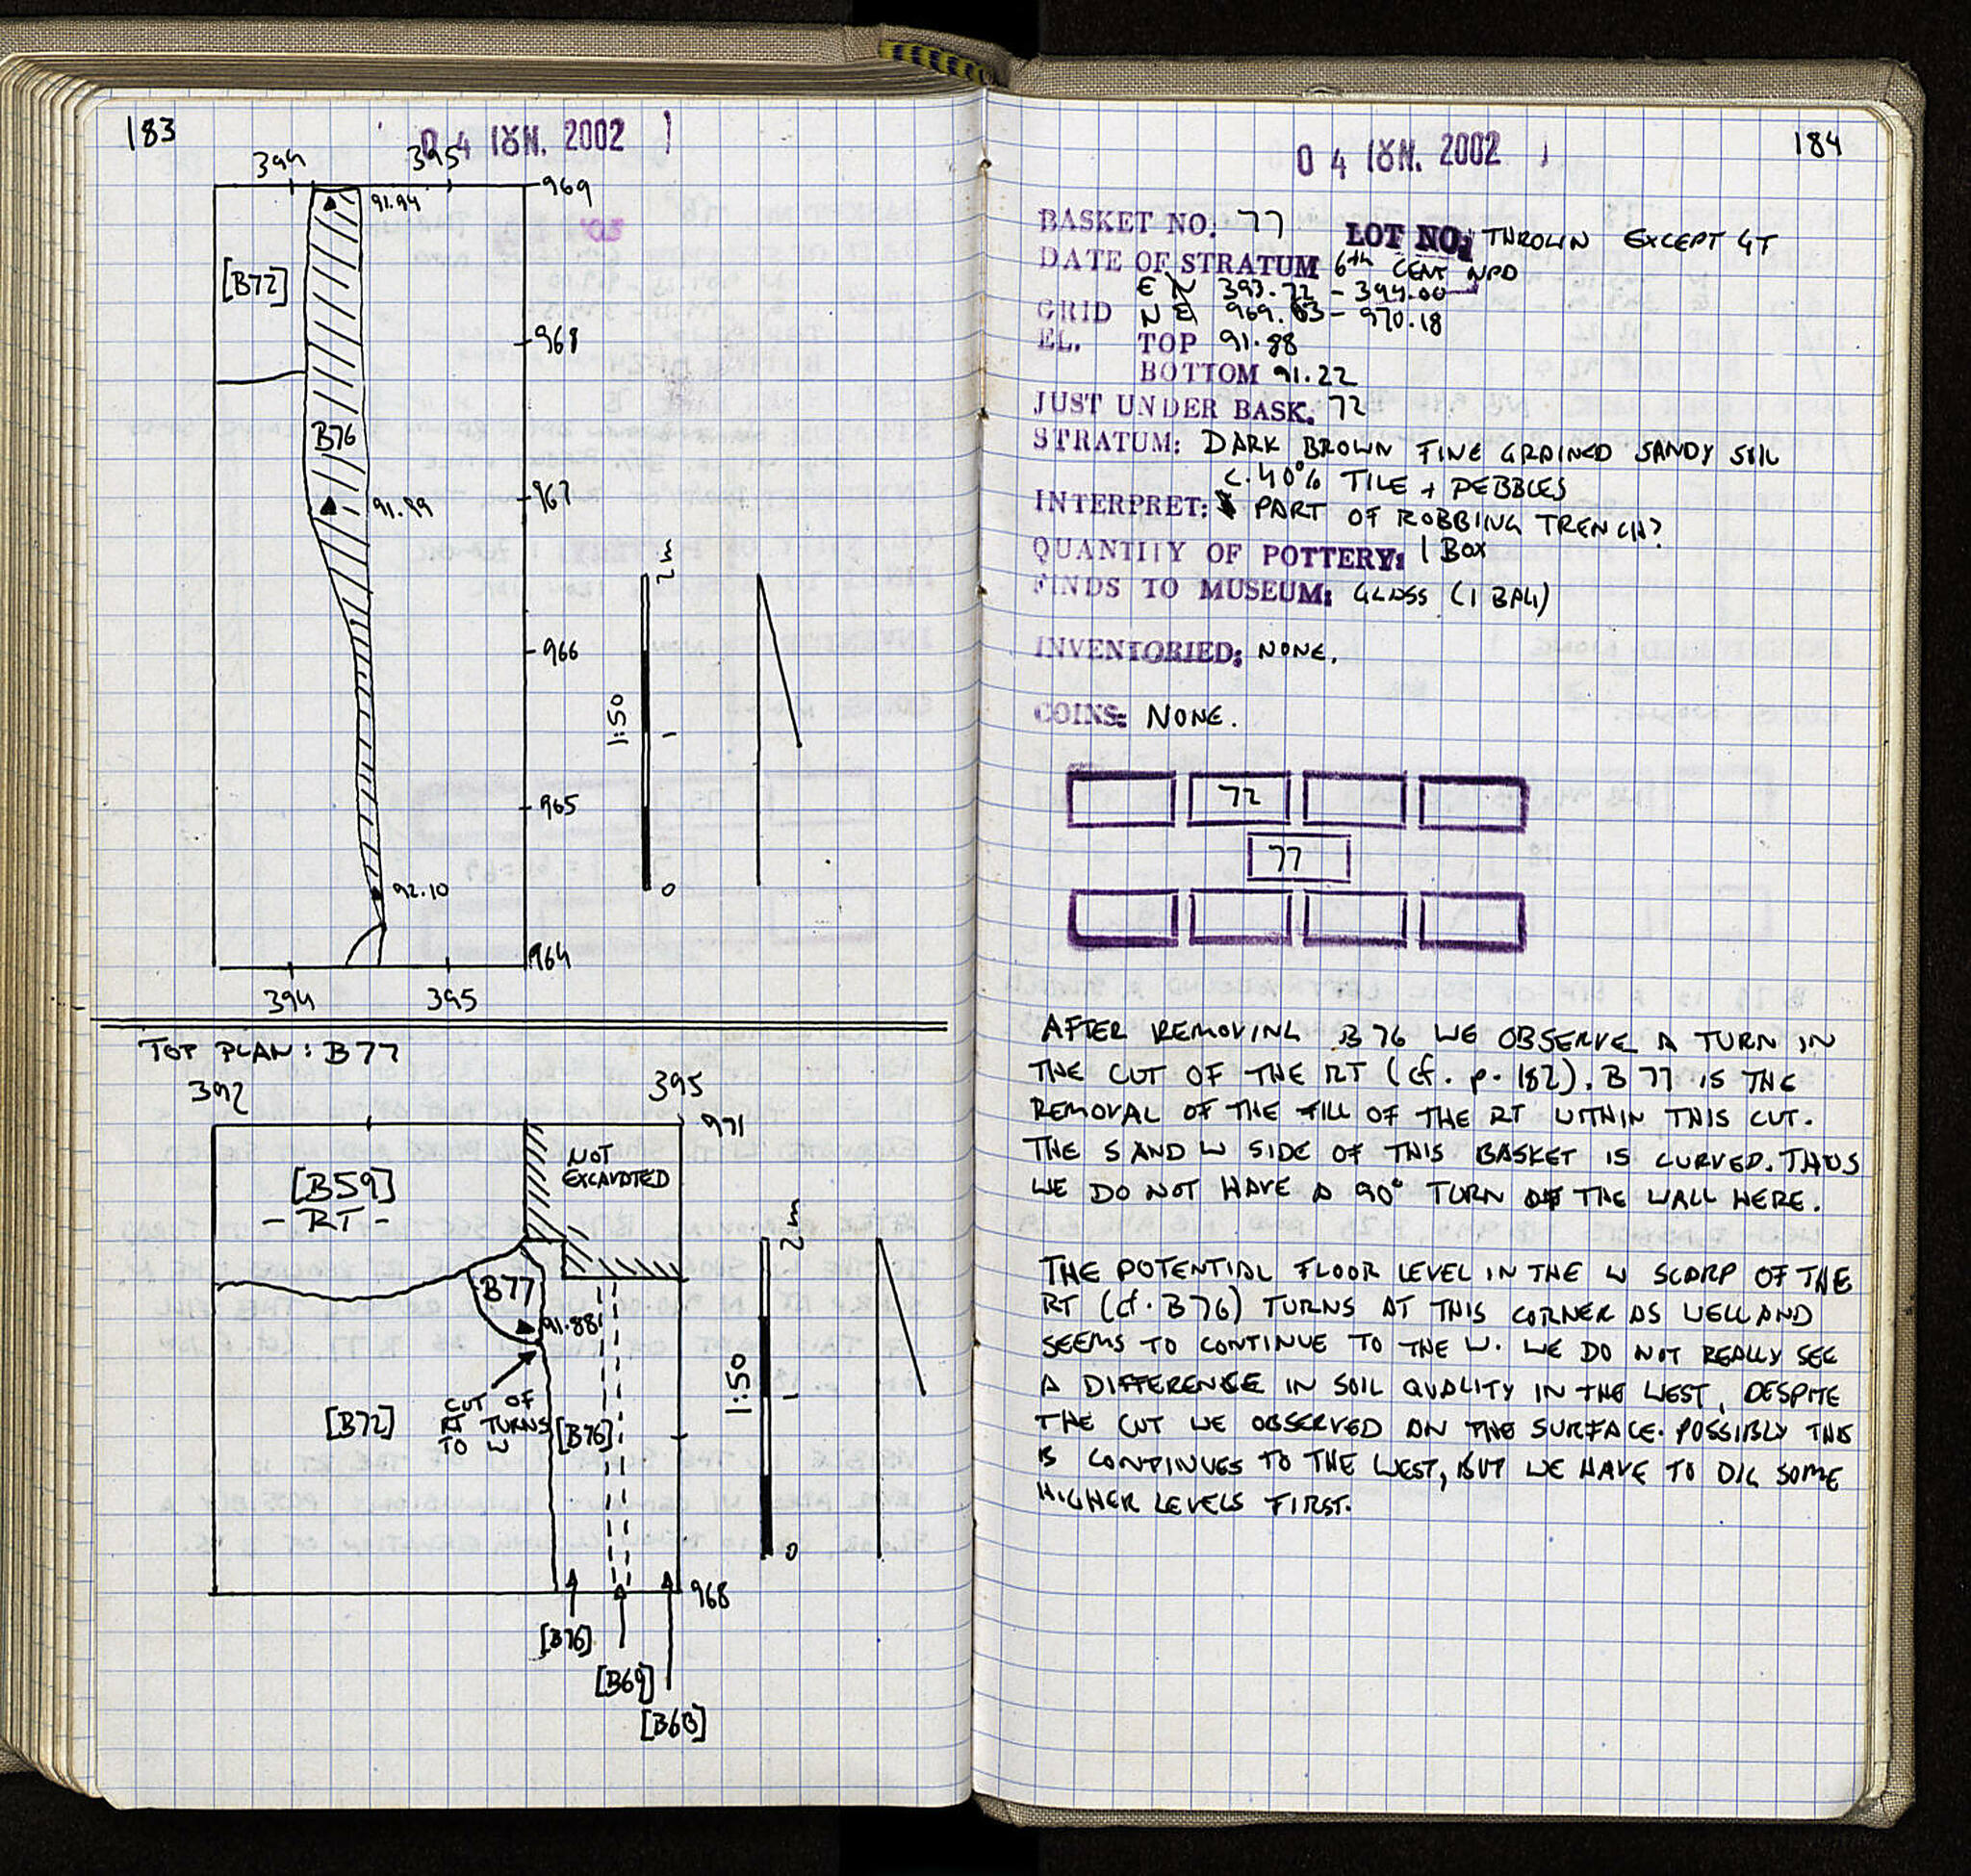 183
04 ΙΟΥΝ. 2002
394 395
969
91.94
[B72]
968
B76
967
91.99
2m
966
1:50
1
965
92.10
0
964
394 395
TOP PLAN: B77
392 395
971
NOT
EXCAVATED
[B59]
- RT -
2m
B77
91.88
1:50
1
CUT OF
RT TURNS
TO W
[B72]
[B76]
0
968
[B76]
[B69]
[B68]
184
04 ΙΟΥΝ. 2002
BASKET NO. 77 LOT NO. THROWN EXCEPT GT
DATE OF STRATUM 6th CENT NPD
E 393.72 - 394.00
GRID N 969.63 - 970.18
EL. TOP 91.88
BOTTOM 91.22
JUST UNDER BASK. 72
STRATUM: DARK BROWN FINE GRAINED SANDY SOIL
C. 40% TILE + PEBBLES
INTERPRET: PART OF ROBBING TRENCH?
QUANTITY OF POTTERY: 1 BOX
FINDS TO MUSEUM: GLASS (1 BAG)
INVENTORIED: NONE.
COINS: NONE.
72
77
AFTER REMOVING B76 WE OBSERVE A TURN IN
THE CUT OF THE RT (cf. p. 182). B77 IS THE
REMOVAL OF THE FILL OF THE RT WITHIN THIS CUT.
THE S AND W SIDE OF THIS BASKET IS CURVED. THUS
WE DO NOT HAVE A 90° TURN OF THE WALL HERE.
THE POTENTIAL FLOOR LEVEL IN THE W SCARP OF THE
RT (cf. B76) TURNS AT THIS CORNER AS WELL AND
SEEMS TO CONTINUE TO THE W. WE DO NOT REALLY SEE
A DIFFERENCE IN SOIL QUALITY IN THE WEST, DESPITE
THE CUT WE OBSERVED ON THE SURFACE. POSSIBLY THIS
CONTINUES TO THE WEST, BUT WE HAVE TO DIG SOME
HIGHER LEVELS FIRST.